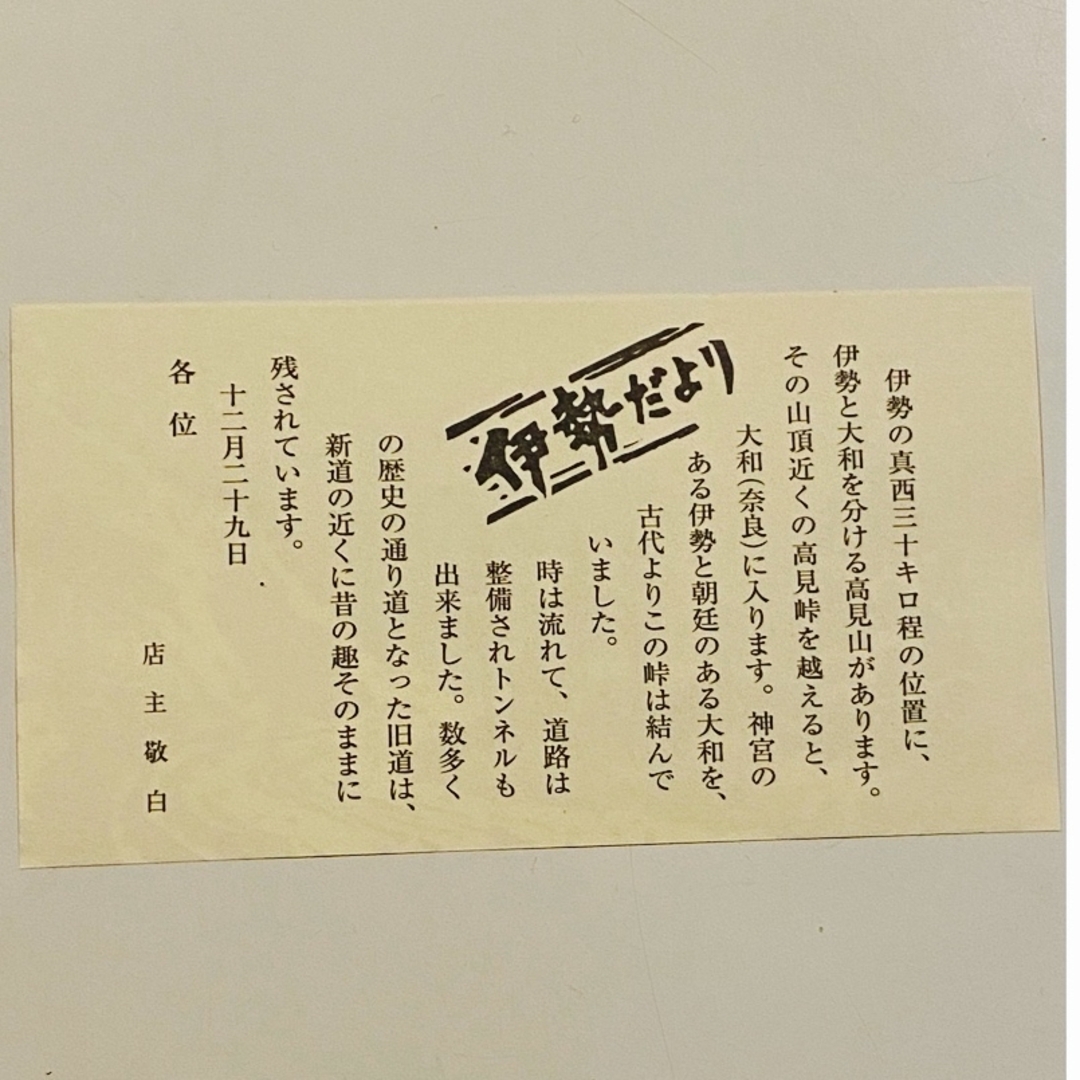 伊勢だより
伊勢の真西三十キロ程の位置に、
伊勢と大和を分ける高見山があります。
その山頂近くの高見峠を越えると、
大和(奈良)に入ります。神宮の
ある伊勢と朝廷のある大和を、
古代よりこの峠は結んで
いました。
時は流れて、道路は
整備されトンネルも
出来ました。数多く
の歴史の通り道となった旧道は、
新道の近くに昔の趣そのままに
残されています。
十二月二十九日
店主敬白
各位